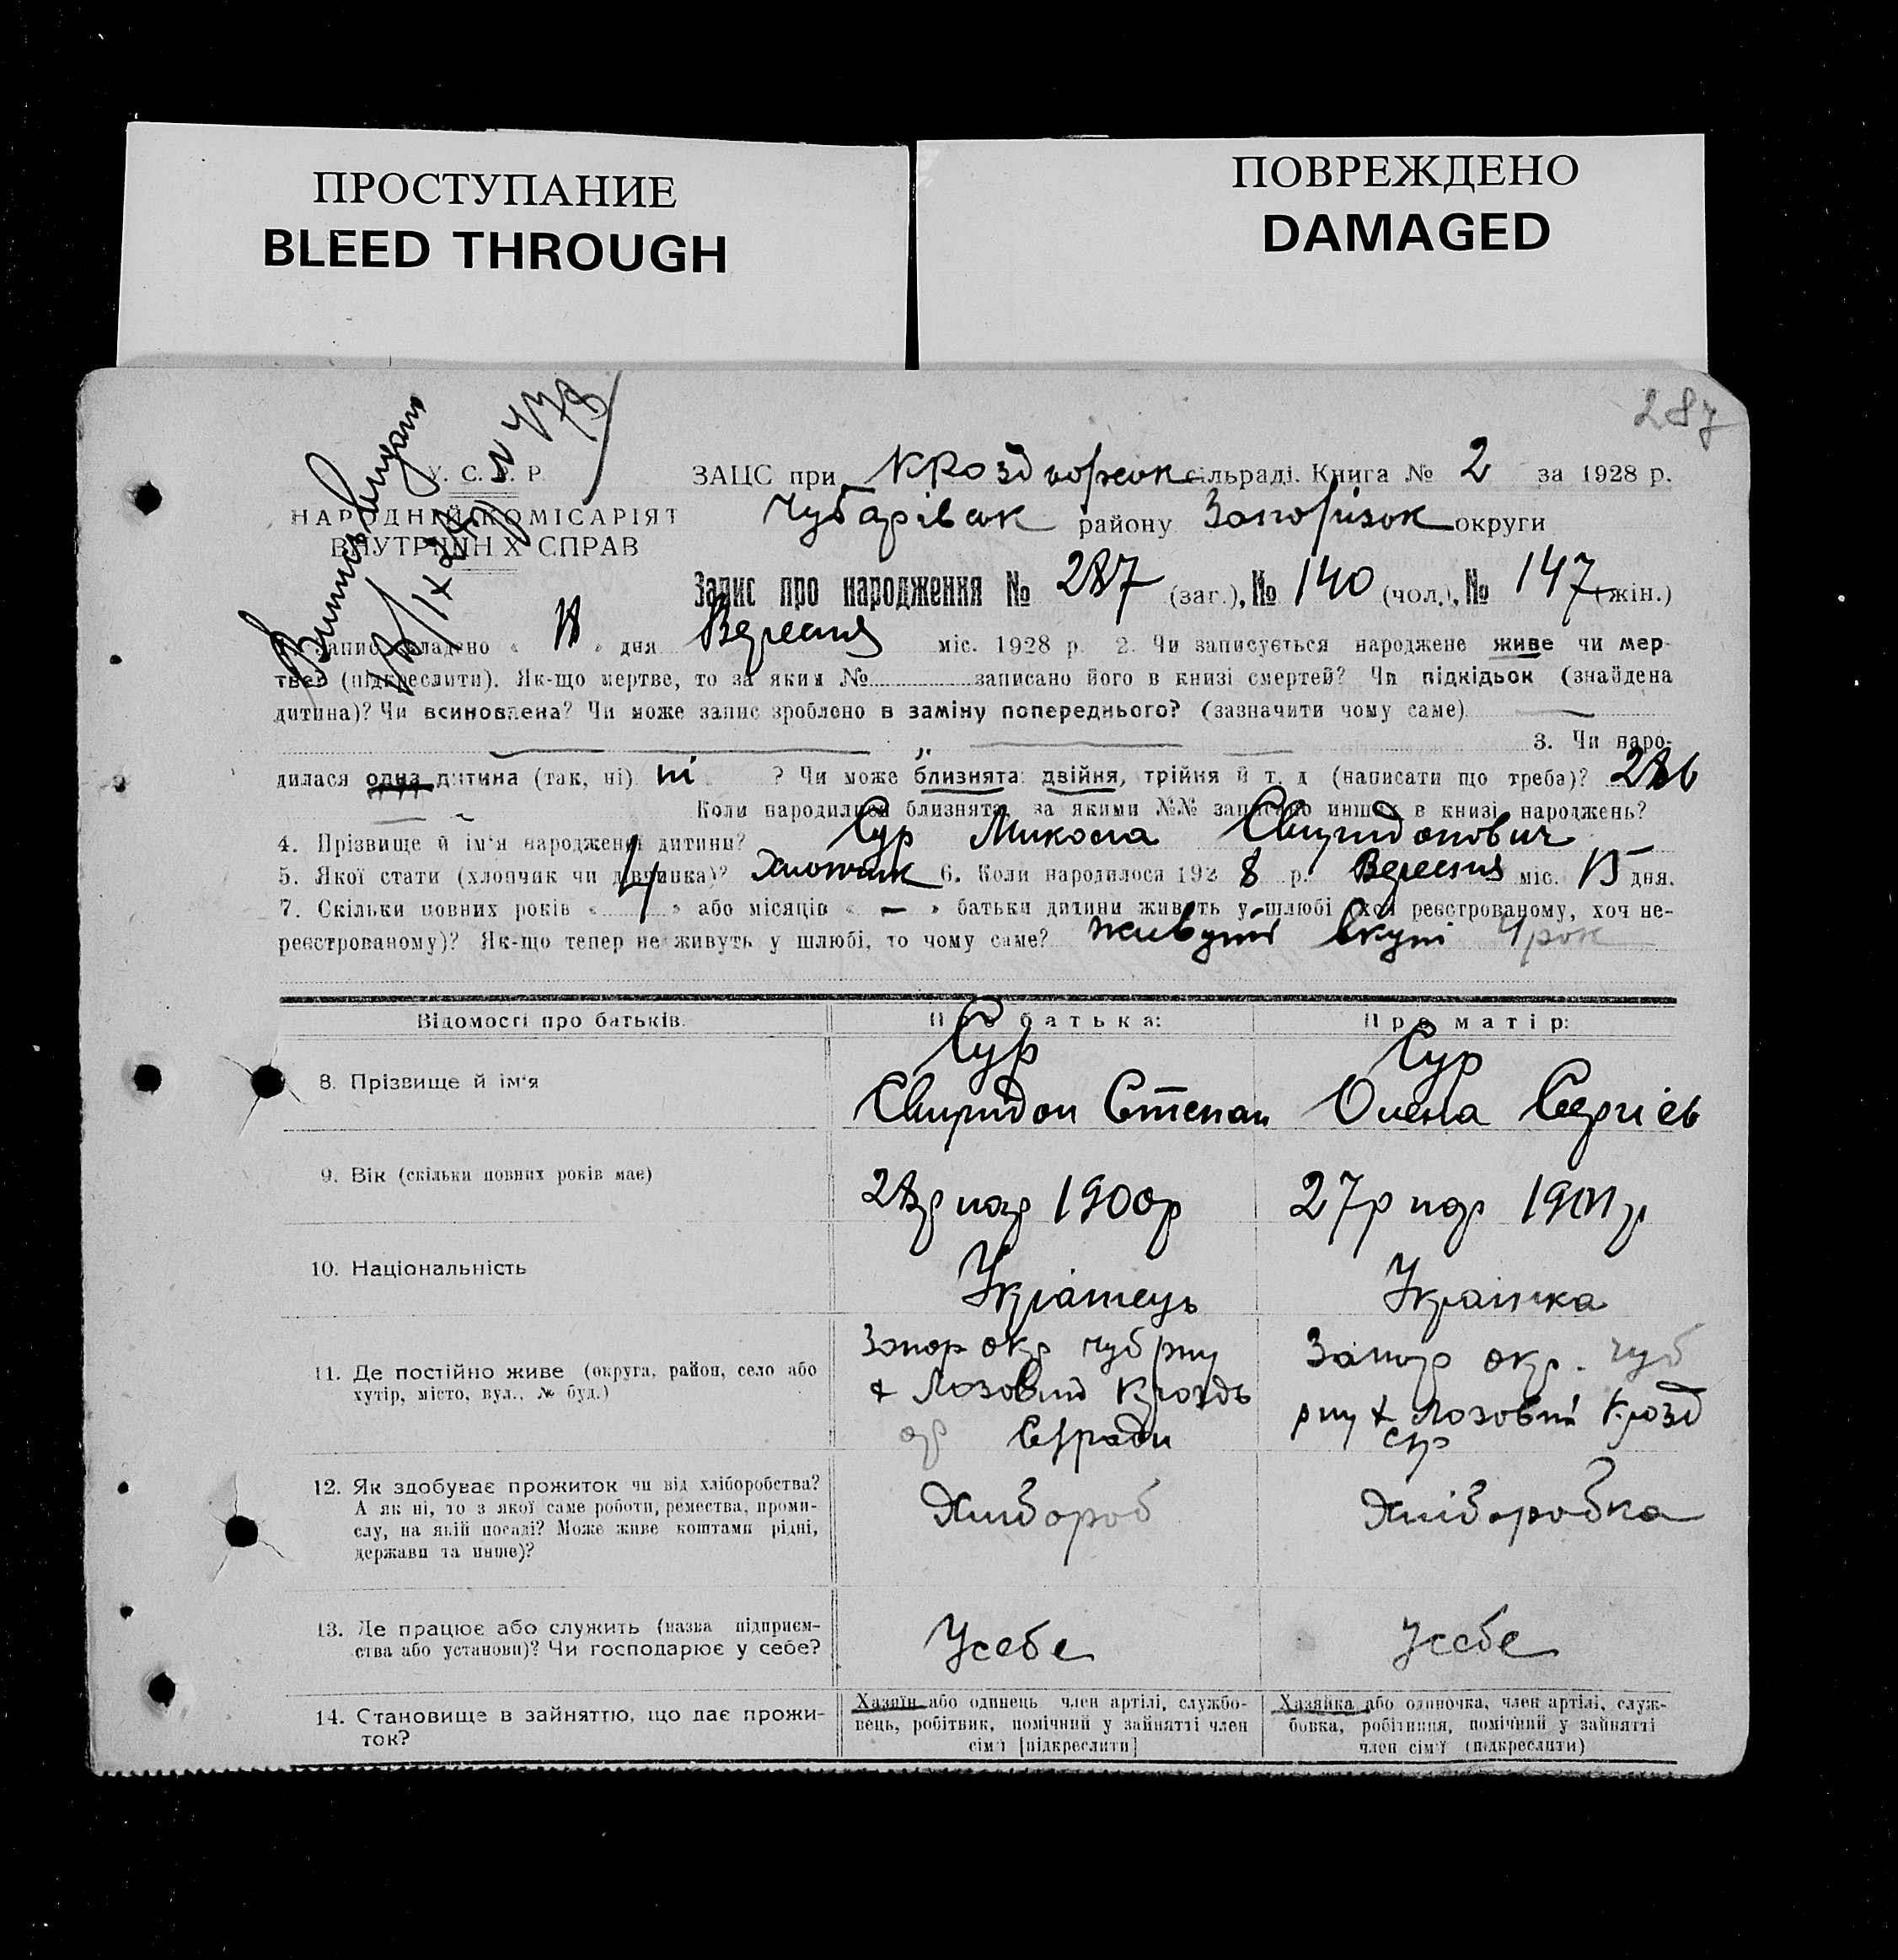 ПРОСТУПАНИЕ
BLEED THROUGH
ПОВРЕЖДЕНО
DAMAGED
287
№ 478
У. С. Р. Р.
НАРОДНІЙ КОМІСАРІЯТ
ВНУТРІШНІХ СПРАВ
ЗАЦС при сільраді. Книга № 2 за 1928 р.
Чубарівськ району Запоріжськ округи
Запис про народження № 287 (заг.), № 140 (чол.), № 147 (жін.)
1. Запис складено « 18 » дня Вересня міс. 1928 р. 2. Чи записується народжене живе чи мер-
тве (підкреслити). Як-що мертве, то за яким № записано його в книзі смертей? Чи підкідьок (знайдена
дитина)? Чи всиновлена? Чи може запис зроблено в заміну попереднього? (зазначити чому саме)
3. Чи наро-
дилася одна дитина (так, ні) ні ? Чи може близнята: двійня, трійня й т. д (написати що треба)? 286
Коли народилися близнята, за якими №№ записано инших в книзі народжень?
4. Прізвище й ім'я народженої дитини? Сур Микола Свиридонович
5. Якої стати (хлопчик чи дівчинка)? Хлопчик 6. Коли народилося 192 8 р. Вересня міс. 15 дня.
7. Скільки повних років « 4 » або місяців « — » батьки дитини живуть у шлюбі (хоч реєстрованому, хоч не-
реєстрованому)? Як-що тепер не живуть у шлюбі, то чому саме? живуть вкупі 4 рок
Відомості про батьків. Про батька: Про матір:
8. Прізвище й ім'я
Сур
Свиридон Степан
Сур
Олена Сергієв
9. Вік (скільки повних років має)
28р нар 1900р
27р нар 1901р
10. Національність
Українець
Українка
11. Де постійно живе (округа, район, село або
хутір, місто, вул., № буд.)
Запор окр Чуб рну
х Лозовий Кроздь
Сградй
Запор окр. Чуб
рну х Лозовий Крозд
с/р
12. Як здобуває прожиток чи від хліборобства?
А як ні, то з якої саме роботи, ремества, проми-
слу, на якій посаді? Може живе коштами рідні,
держави та инше)?
Хлібороб
Хліборобка
13. Де працює або служить (назва підприєм-
ства або установи)? Чи господарює у себе?
Усебе
Усебе
14. Становище в зайняттю, що дає прожи-
ток?
Хазяїн або одинець член артілі, службо-
вець, робітник, помічний у зайнятті член
сім'ї [підкреслити]
Хазяйка або одиночка, член артілі, служ-
бовка, робітниця, помічний у зайнятті
член сім'ї (підкреслити)